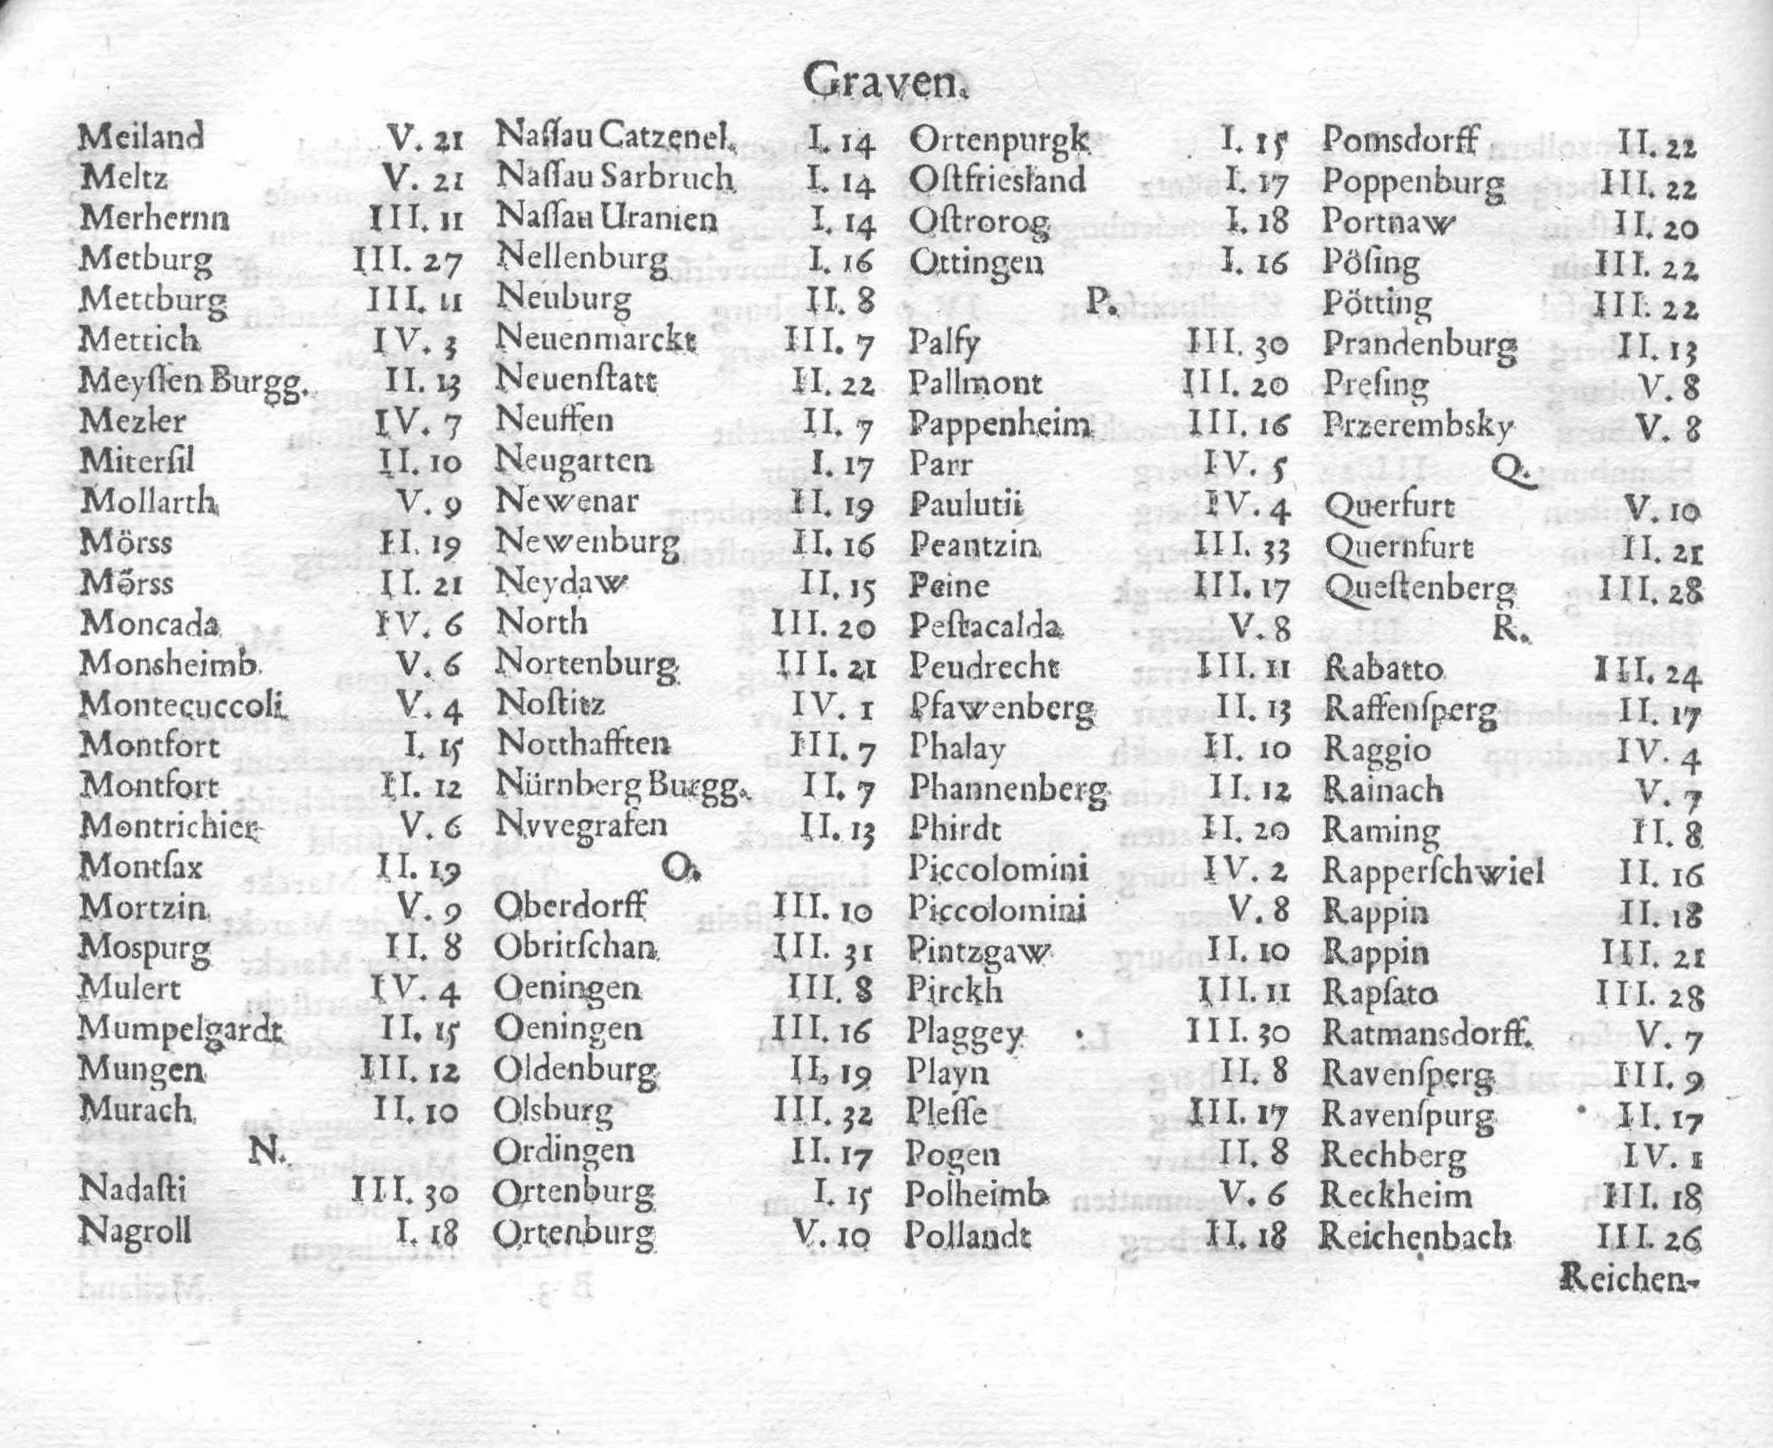 Graven.
Meiland V. 21
Meltz V. 21
Merhernn III. 11
Metburg III. 27
Mettburg III. 11
Mettich IV. 3
Meyſſen Burgg. II. 13
Mezler IV. 7
Miterſil II. 10
Mollarth V. 9
Mörss II. 19
Mörss II. 21
Moncada IV. 6
Monsheimb V. 6
Montecuccoli V. 4
Montfort I. 15
Montfort II. 12
Montrichier V. 6
Montſax II. 19
Mortzin V. 9
Mospurg II. 8
Mulert IV. 4
Mumpelgardt II. 15
Mungen III. 12
Murach II. 10
N.
Nadaſti III. 30
Nagroll I. 18
Naſſau Catzenel. I. 14
Naſſau Sarbruch I. 14
Naſſau Uranien I. 14
Nellenburg I. 16
Neuburg II. 8
Neuenmarckt III. 7
Neuenſtatt II. 22
Neuffen II. 7
Neugarten I. 17
Newenar II. 19
Newenburg II. 16
Neydaw II. 15
North III. 20
Nortenburg III. 21
Noſtitz IV. 1
Notthafften III. 7
Nürnberg Burgg. II. 7
Nvvegrafen II. 13
O.
Oberdorff III. 10
Obritſchan III. 31
Oeningen III. 8
Oeningen III. 16
Oldenburg II. 19
Olsburg III. 32
Ordingen II. 17
Ortenburg I. 15
Ortenburg V. 10
Ortenpurgk I. 15
Oſtfriesland I. 17
Oſtrorog I. 18
Ottingen I. 16
P.
Palfy III. 30
Pallmont III. 20
Pappenheim III. 16
Parr IV. 5
Paulutii IV. 4
Peantzin III. 33
Peine III. 17
Peſtacalda V. 8
Peudrecht III. 11
Pfawenberg II. 13
Phalay II. 10
Phannenberg II. 12
Phirdt II. 20
Piccolomini IV. 2
Piccolomini V. 8
Pintzgaw II. 10
Pirckh III. 11
Plaggey III. 30
Playn II. 8
Pleſſe III. 17
Pogen II. 8
Polheimb V. 6
Pollandt II. 18
Pomsdorff II. 22
Poppenburg III. 22
Portnaw II. 20
Pöſing III. 22
Pötting III. 22
Prandenburg II. 13
Preſing V. 8
Przerembsky V. 8
Q.
Querfurt V. 10
Quernfurt II. 21
Queſtenberg III. 28
R.
Rabatto III. 24
Raffenſperg II. 17
Raggio IV. 4
Rainach V. 7
Raming II. 8
Rapperſchwiel II. 16
Rappin II. 18
Rappin III. 21
Rapſato III. 28
Ratmansdorff. V. 7
Ravenſperg III. 9
Ravenſpurg II. 17
Rechberg IV. 1
Reckheim III. 18
Reichenbach III. 26
Reichen-